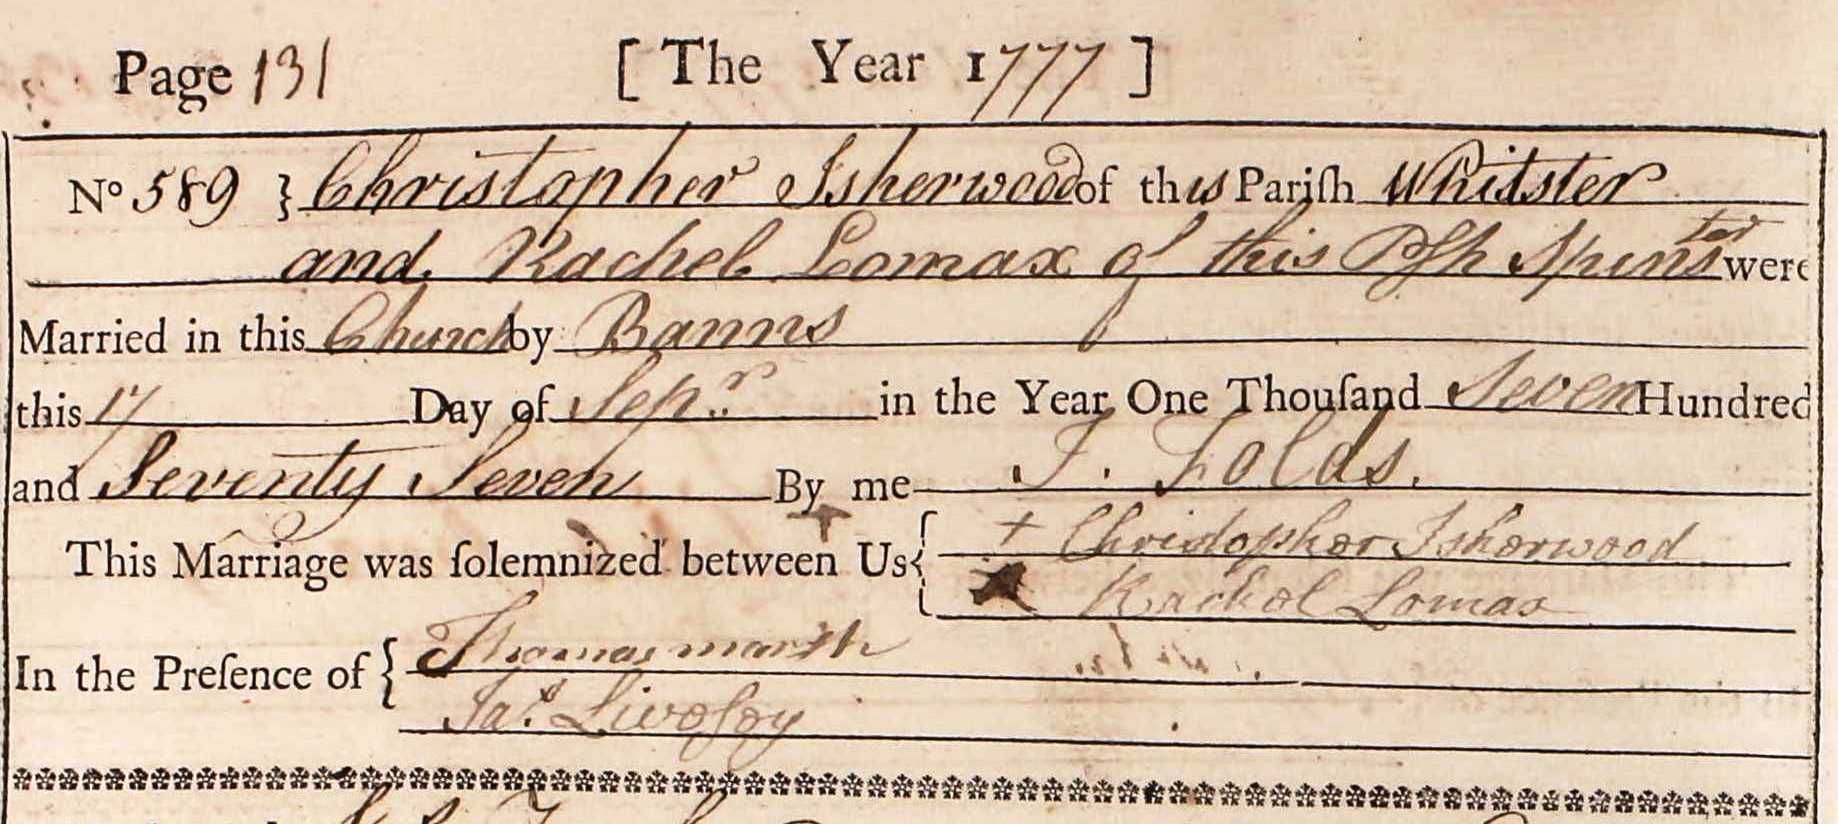 Page 131 [ The Year 1777 ]
No 589 } Christopher Isherwood of this Pariſh Whitster
and Rachel Lomax of this Psh Spinster were
Married in this Church by Banns
this 17 Day of Sepr. in the Year One Thouſand Seven Hundred
and Seventy Seven By me J. Folds.
This Marriage was ſolemnized between Us { + Christopher Isherwood
Rachel Lomax
In the Preſence of { Thomas marsh
Jas. Livesey